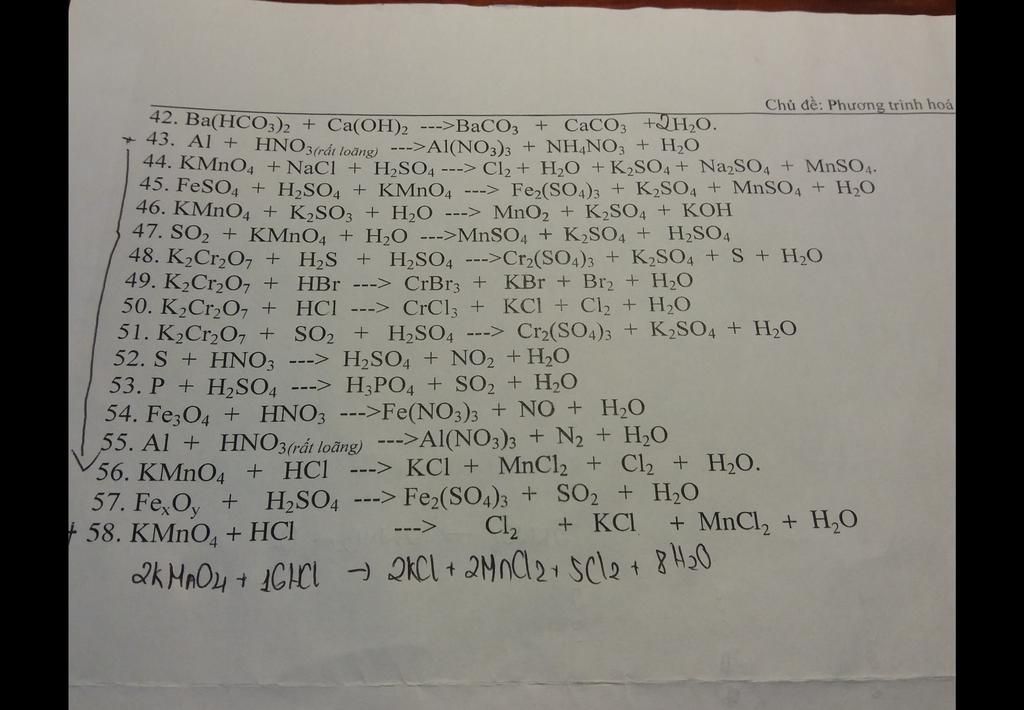 Chủ đề: Phương trình hoá
42. Ba(HCO₃)₂ + Ca(OH)₂ --->BaCO₃ + CaCO₃ +2H₂O.
+ 43. Al + HNO₃(rất loãng) --->Al(NO₃)₃ + NH₄NO₃ + H₂O
44. KMnO₄ + NaCl + H₂SO₄ ---> Cl₂ + H₂O + K₂SO₄ + Na₂SO₄ + MnSO₄.
45. FeSO₄ + H₂SO₄ + KMnO₄ ---> Fe₂(SO₄)₃ + K₂SO₄ + MnSO₄ + H₂O
46. KMnO₄ + K₂SO₃ + H₂O ---> MnO₂ + K₂SO₄ + KOH
47. SO₂ + KMnO₄ + H₂O --->MnSO₄ + K₂SO₄ + H₂SO₄
48. K₂Cr₂O₇ + H₂S + H₂SO₄ --->Cr₂(SO₄)₃ + K₂SO₄ + S + H₂O
49. K₂Cr₂O₇ + HBr ---> CrBr₃ + KBr + Br₂ + H₂O
50. K₂Cr₂O₇ + HCl ---> CrCl₃ + KCl + Cl₂ + H₂O
51. K₂Cr₂O₇ + SO₂ + H₂SO₄ ---> Cr₂(SO₄)₃ + K₂SO₄ + H₂O
52. S + HNO₃ ---> H₂SO₄ + NO₂ + H₂O
53. P + H₂SO₄ ---> H₃PO₄ + SO₂ + H₂O
54. Fe₃O₄ + HNO₃ --->Fe(NO₃)₃ + NO + H₂O
55. Al + HNO₃(rất loãng) --->Al(NO₃)₃ + N₂ + H₂O
56. KMnO₄ + HCl ---> KCl + MnCl₂ + Cl₂ + H₂O.
57. FeₓOᵧ + H₂SO₄ ---> Fe₂(SO₄)₃ + SO₂ + H₂O
+ 58. KMnO₄ + HCl ---> Cl₂ + KCl + MnCl₂ + H₂O
2KMnO₄ + 16HCl → 2KCl + 2MnCl₂ + 5Cl₂ + 8H₂O